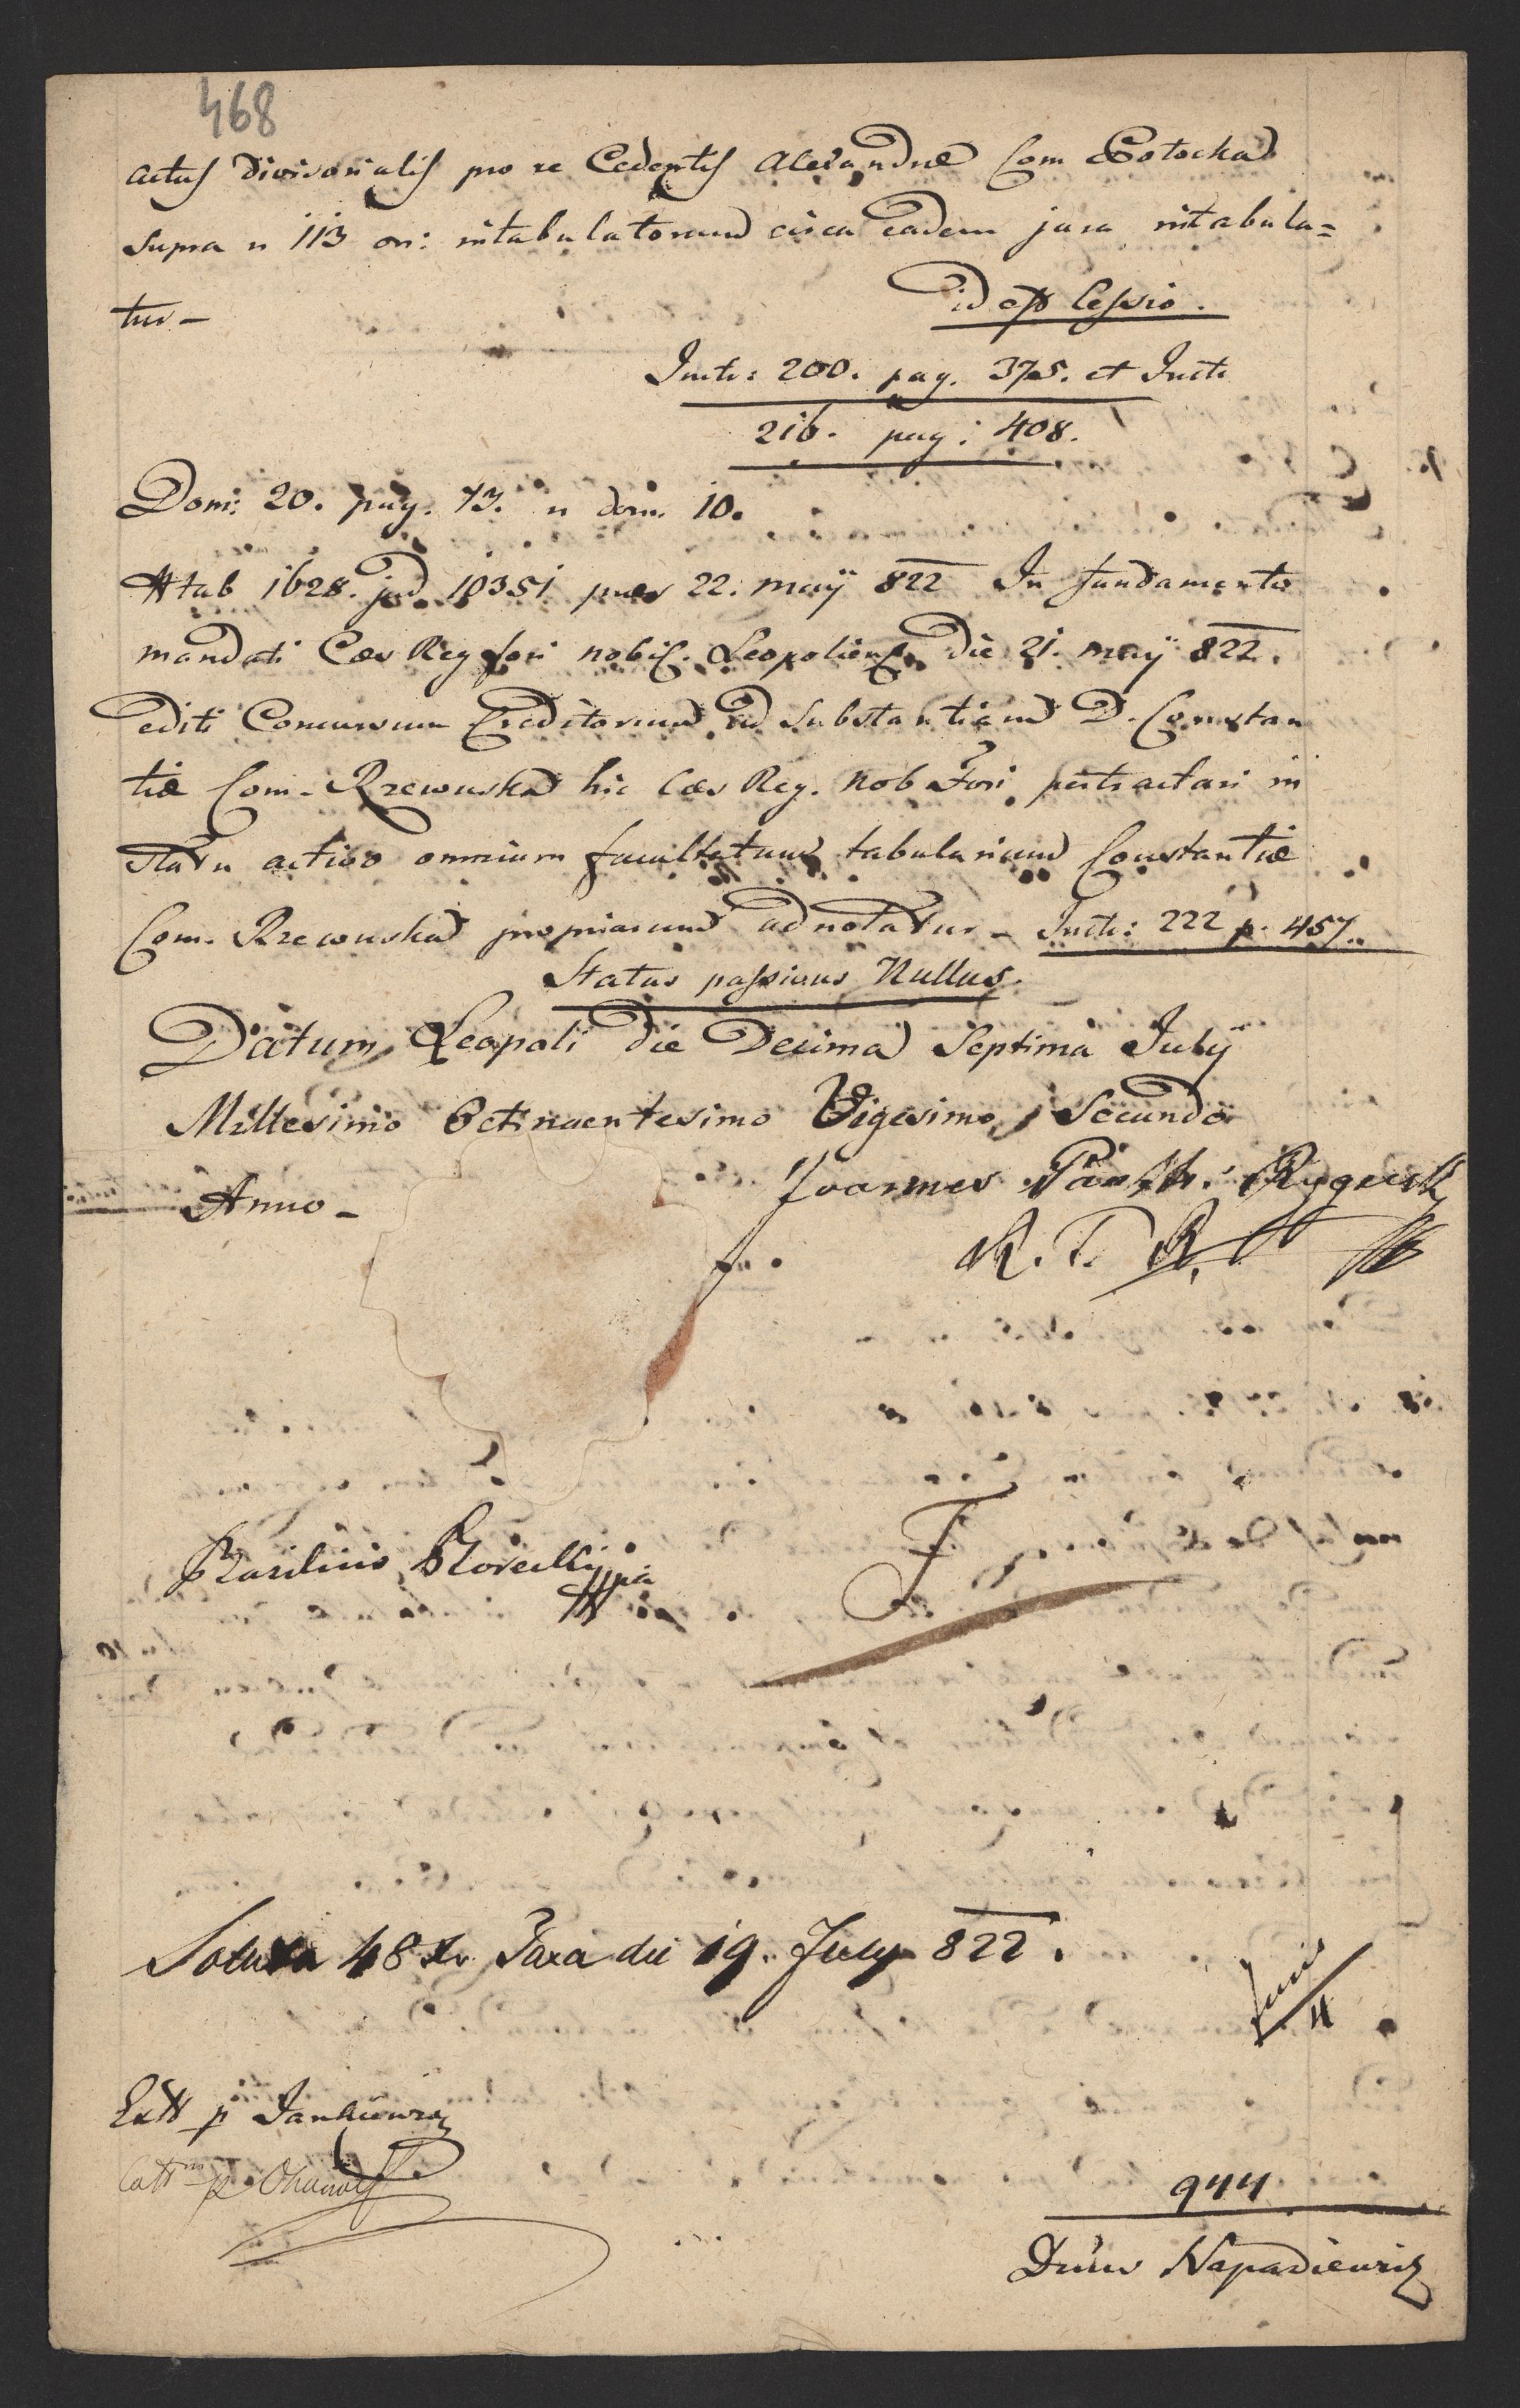 468
actus divisorialis pro re Cedentis Alexandræ Com Potocka
supra n 113 on: intabulatorum circa eadem jura intabula=
tur –
id est Cessio.
Instr: 200. pag. 375. et Instr
216. pag: 408.
Dom: 20. pag. 73. n dom. 10.
Ntab 1628. jud 10351 præs 22. may 822 In fundamento
mandati Cæs Reg fori nobil. Leopoliens Die 21. may 822.
editi Concursum Creditorum ad Substantiam D. Constan
tiæ Com. Rzewuska hic Cæs Reg. Nob Fori pertractari in
statu activo omnium facultatum tabularium Constantiæ
Com. Rzewuska propriarum adnotatur – Instr: 222 p. 457.
Status passivus Nullus.
Datum Leopoli die Decima Septima July
Millesimo Octingentesimo Vigesimo Secundo
Anno –
Joannes
R. T. R.
Basilius
Soluta 48 xr Taxa die 19. July 822.
Extr p Jankiewicz
p
944
Napadiewicz